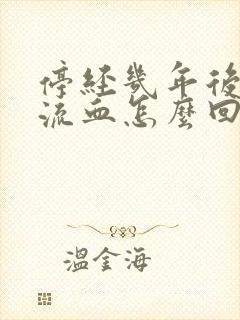 停經幾年後
流血怎麼回
溫金海